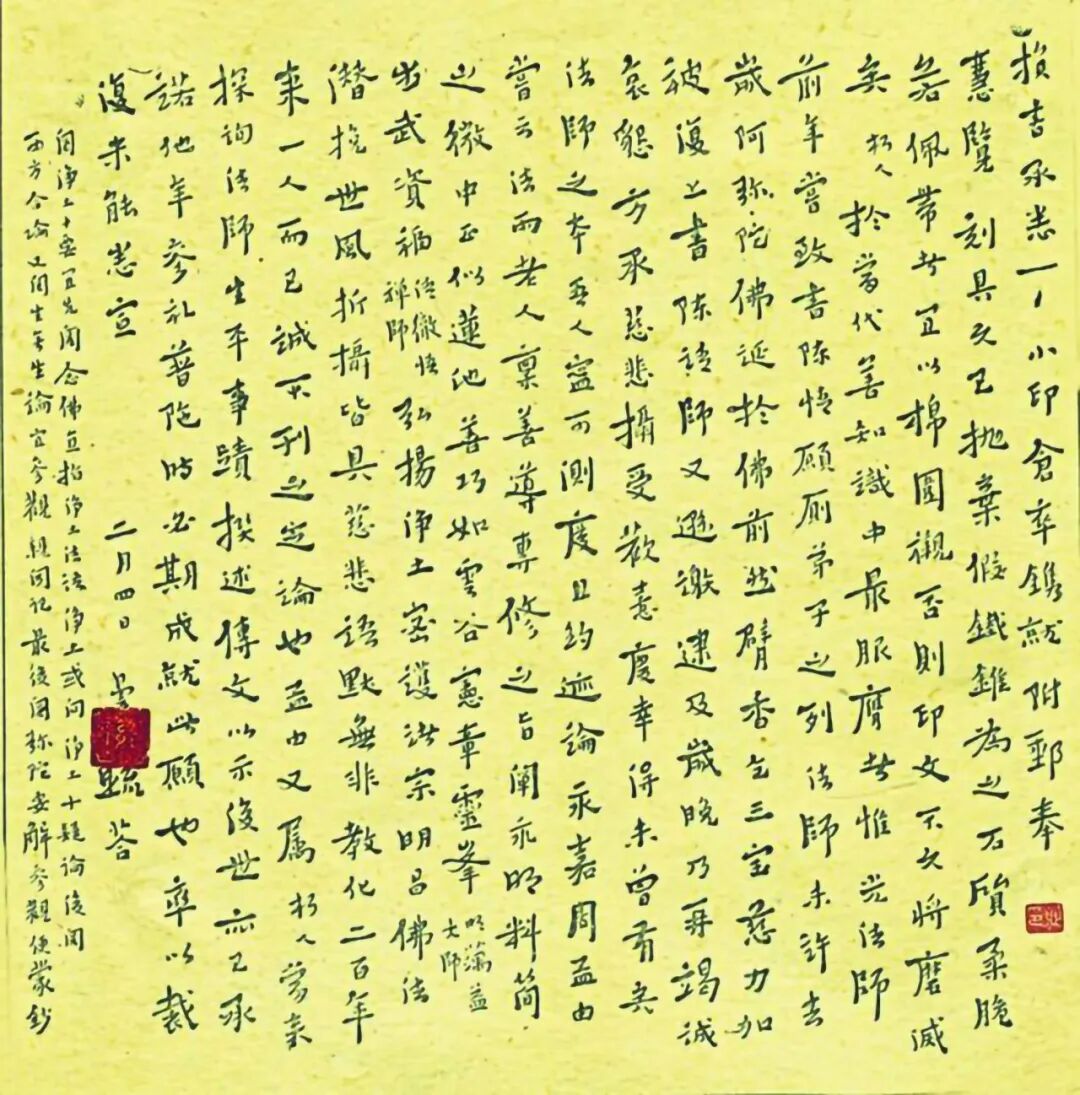 損書承悉一一小印倉卒鐫就附郵奉
慧覽 刻具久已拋棄假鐵錐為之石質柔脆
若佩帶者宜以棉圍襯否則印文不久將磨滅
矣 朽人於當代善知識中最服膺者惟光法師
前年嘗致書陳情願廁弟子之列法師未許去
歲阿彌陀佛誕於佛前然臂香乞三寶慈力加
被復上書陳請師又遜謝逮及歲晚乃再竭誠
哀懇方承慈悲攝受歡喜慶幸得未曾有矣
法師之本吾人寧可測度且約迹論永嘉周孟由
嘗云法雨老人稟善導專修之旨闡永明料簡
之微中正似蓮池善巧如雲谷憲章靈峯 明蕅益大師
步武資福 清徹悟禪師 弘揚淨土密護諸宗明昌佛法
潛挽世風折攝皆具慈悲語默無非教化二百年
來一人而已誠不刊之定論也孟由又屬朽人當來
探詢法師生平事蹟撰述傳文以示後世亦已承
諾他年參礼普陀時必期成就此願也率以裁
復未能悉宣
二月四日 曇 疏答
閱淨土十要宜先閱念佛直指淨土法語淨土或問淨土十疑論後閱
西方合論又閱生無生論宜參觀親聞記最後閱彌陀要解參觀便蒙鈔